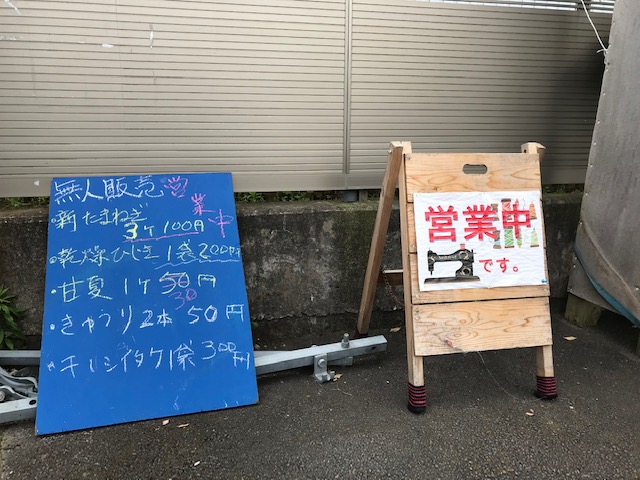 無人販売 営業中
・新たまねぎ
3ケ100円
・乾燥ひじき1袋200円
・甘夏 1ケ 50円
30
・きゅうり2本 50円
・干しシイタケ1袋 300円
営業中
です。